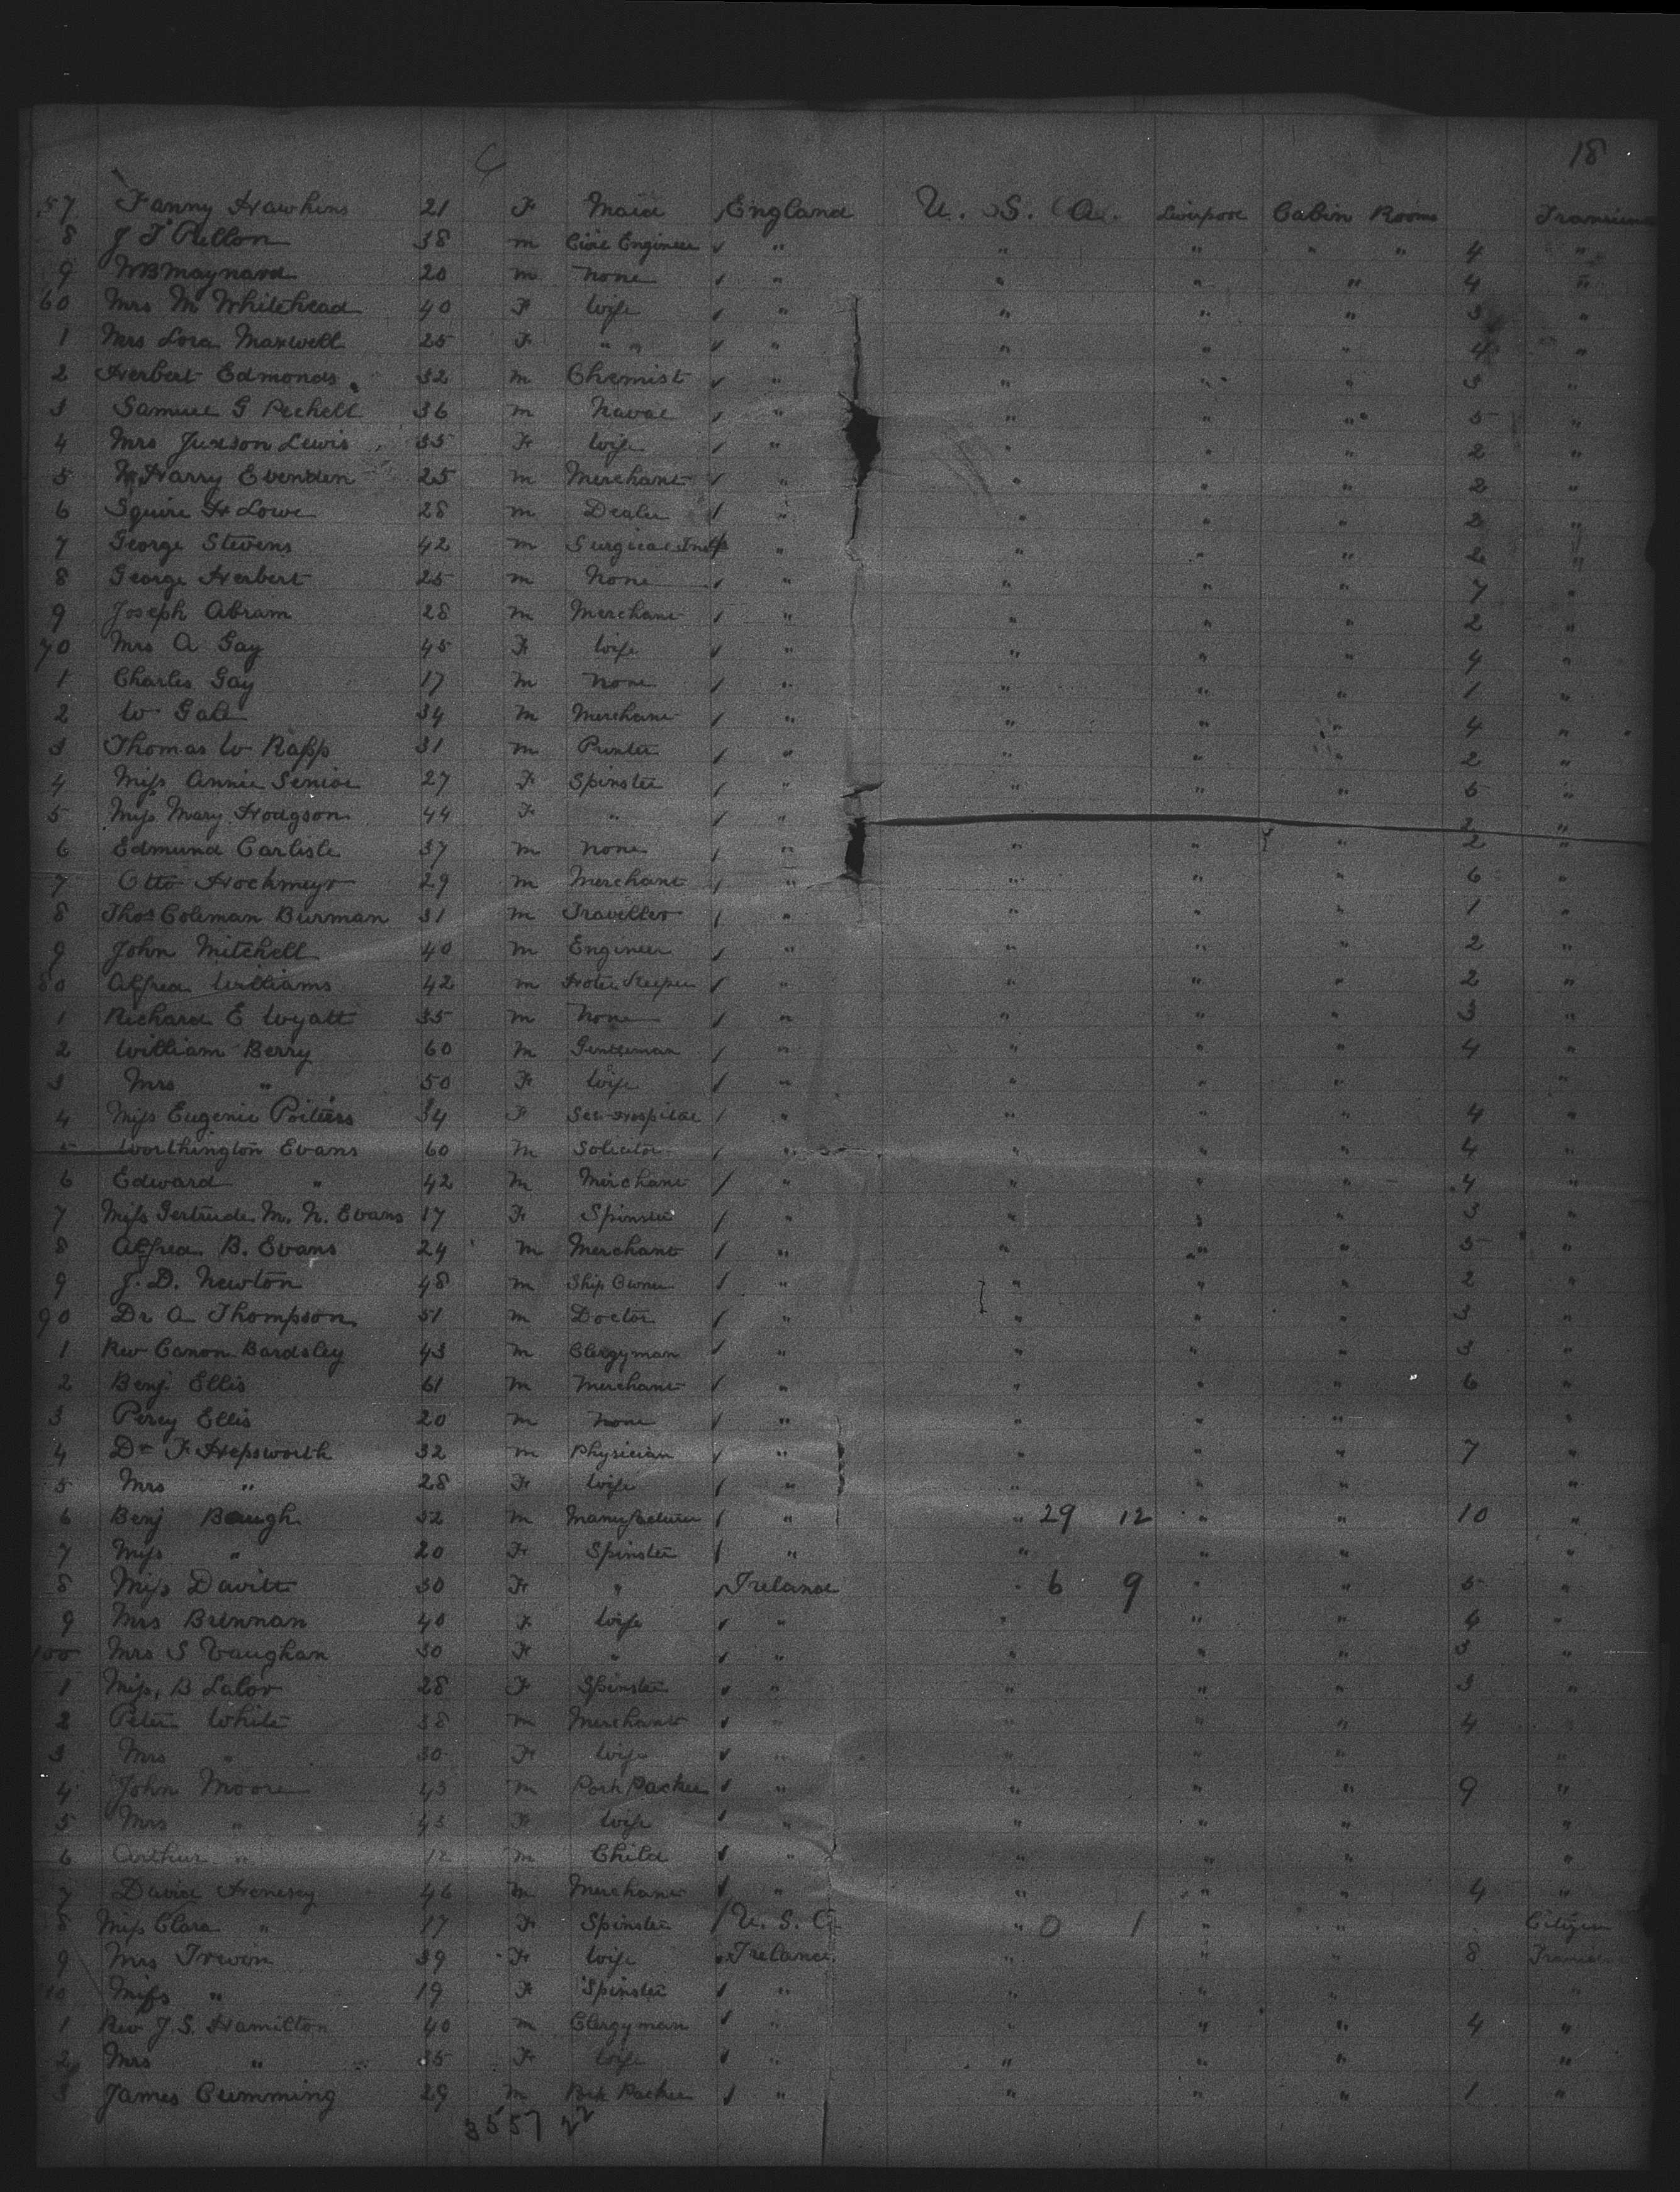 18
57 Fanny Hawkins 21 F Maid England U. S. A. Liverpool Cabin Rooms
8 J T Pellon 38 m Civil Engineer " " " " " 4 "
9 WB Maynard 20 m None " " " " 4 "
60 Mrs M Whitehead 40 F Wife " " " " 3 "
1 Mrs Lora Maxwell 25 F " " " " " " 4 "
2 Herbert Edmonds 32 m Chemist " " " " 3 "
3 Samuel G Pechell 36 m Naval " " " " 5 "
4 Mrs Juxson Lewis 35 F Wife " " " " 2 "
5 Harry Evenden 25 m Merchant " " " " 2 "
6 Squire H Lowe 28 m Dealer " " " " 2 "
7 George Stevens 42 m Surgical Inst " " " " 2 "
8 George Herbert 25 m None " " " " 7 "
9 Joseph Abram 28 m Merchant " " " " 2 "
70 Mrs A Gay 45 F Wife " " " " 4 "
1 Charles Gay 17 m None " " " " 1 "
2 W Gale 34 m Merchant " " " " 4 "
3 Thomas W Rapp 31 m Printer " " " " 2 "
4 Miss Annie Senior 27 F Spinster " " " " 5 "
5 Miss Mary Hodgson 44 F " " 2 "
6 Edmund Carlisle 37 m None " " " " 2 "
7 Otto Hochmeyr 29 m Merchant " " " " 6 "
8 Thos Coleman Burman 31 m Traveller " " " " 1 "
9 John Mitchell 40 m Engineer " " " " 2 "
80 Alfred Williams 42 m Hotel Keeper " " " " 2 "
1 Richard E Wyatt 35 m None " " " " 3 "
2 William Berry 60 m Gentleman " " " " 4 "
3 Mrs " 50 F Wife " " " " "
4 Miss Eugenie Poitiers 34 F Sec Hospital " " " " 4 "
5 Worthington Evans 60 m Solicitor " " " " 4 "
6 Edward " 42 m Merchant " " " " 4 "
7 Miss Gertrude M. N. Evans 17 F Spinster " " " " 3 "
8 Alfred B. Evans 24 m Merchant " " " " 5 "
9 J. D. Newton 48 m Ship Owner " " " " 2 "
90 Dr A Thompson 51 m Doctor " " " " 3 "
1 Rev Canon Bardsley 43 m Clergyman " " " " 3 "
2 Benj. Ellis 61 m Merchant " " " " 6 "
3 Percy Ellis 20 m None " " " " "
4 Dr F Hepsworth 32 m Physician " " " " 7 "
5 Mrs " 28 F Wife " " " " "
6 Benj Baugh 32 m Manufacturer " " 29 12 " " 10 "
7 Miss " 20 F Spinster " " " " "
8 Miss Davitt 30 F " Ireland " 6 9 " " 5 "
9 Mrs Brennan 40 F Wife " " " " 4 "
100 Mrs S Vaughan 30 F " " " " " 3 "
1 Miss B Lalor 28 F Spinster " " " " 3 "
2 Peter White 38 m Merchant " " " " 4 "
3 Mrs " 30 F Wife " " " " "
4 John Moore 43 m Pork Packer " " " " 9 "
5 Mrs " 43 F Wife " " " " "
6 Arthur " 12 m Child " " " " "
7 David Henesey 46 m Merchant " " " " 4 "
8 Miss Clara " 17 F Spinster U. S. A " 0 1 " " Citizen
9 Mrs Irwin 39 F Wife Ireland " " " 8
10 Miss " 19 F Spinster " " " " "
1 Rev J. S. Hamilton 40 m Clergyman " " " " 4 "
2 Mrs " 35 F Wife " " " "
3 James Cumming 29 m Pork Packer " " " " 1 "
35 57 22